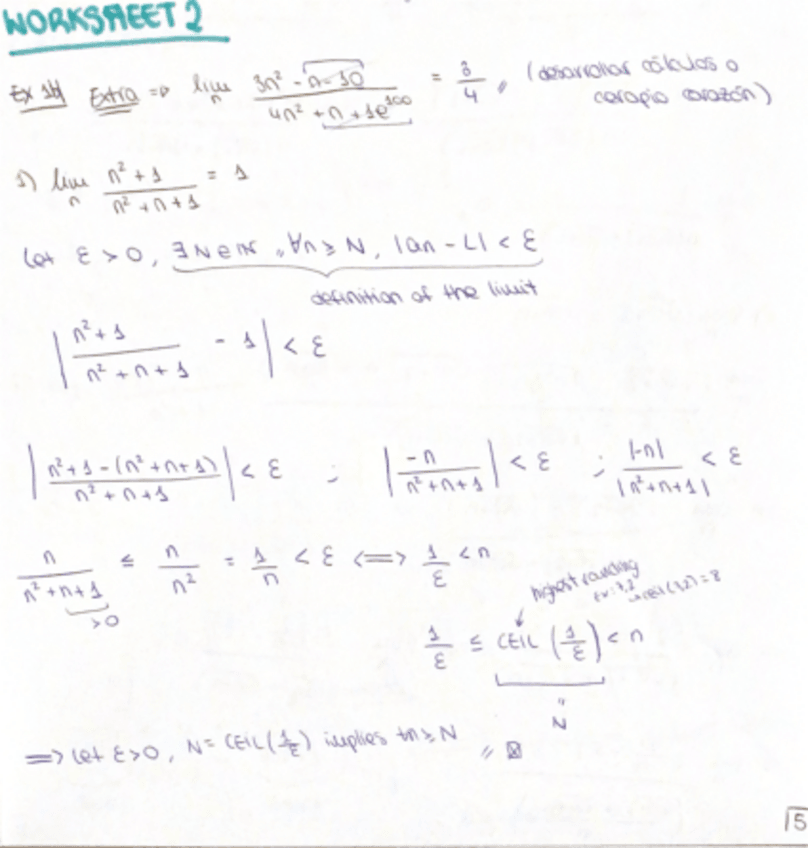 WORKSHEET 2
Ex 1b) Extra => lim n (3n² - n - 10) / (4n² + n + 1e¹⁰⁰) = 3/4 // (desarrollar cálculos o carapio corazón)
1) lim n (n² + 1) / (n² + n + 1) = 1
Let ε > 0, ∃N∈ℕ, ∀n ≥ N, |an - L| < ε
definition of the limit
| (n² + 1) / (n² + n + 1) - 1 | < ε
| (n² + 1 - (n² + n + 1)) / (n² + n + 1) | < ε ; | -n / (n² + n + 1) | < ε ; |-n| / |n² + n + 1| < ε
n / (n² + n + 1) ≤ n / n² = 1/n < ε <=> 1/ε < n
>0
highest rounding
1/ε ≤ CEIL (1/ε) < n
N
=> Let ε > 0, N = CEIL(1/ε) implies ∀n ≥ N //
15